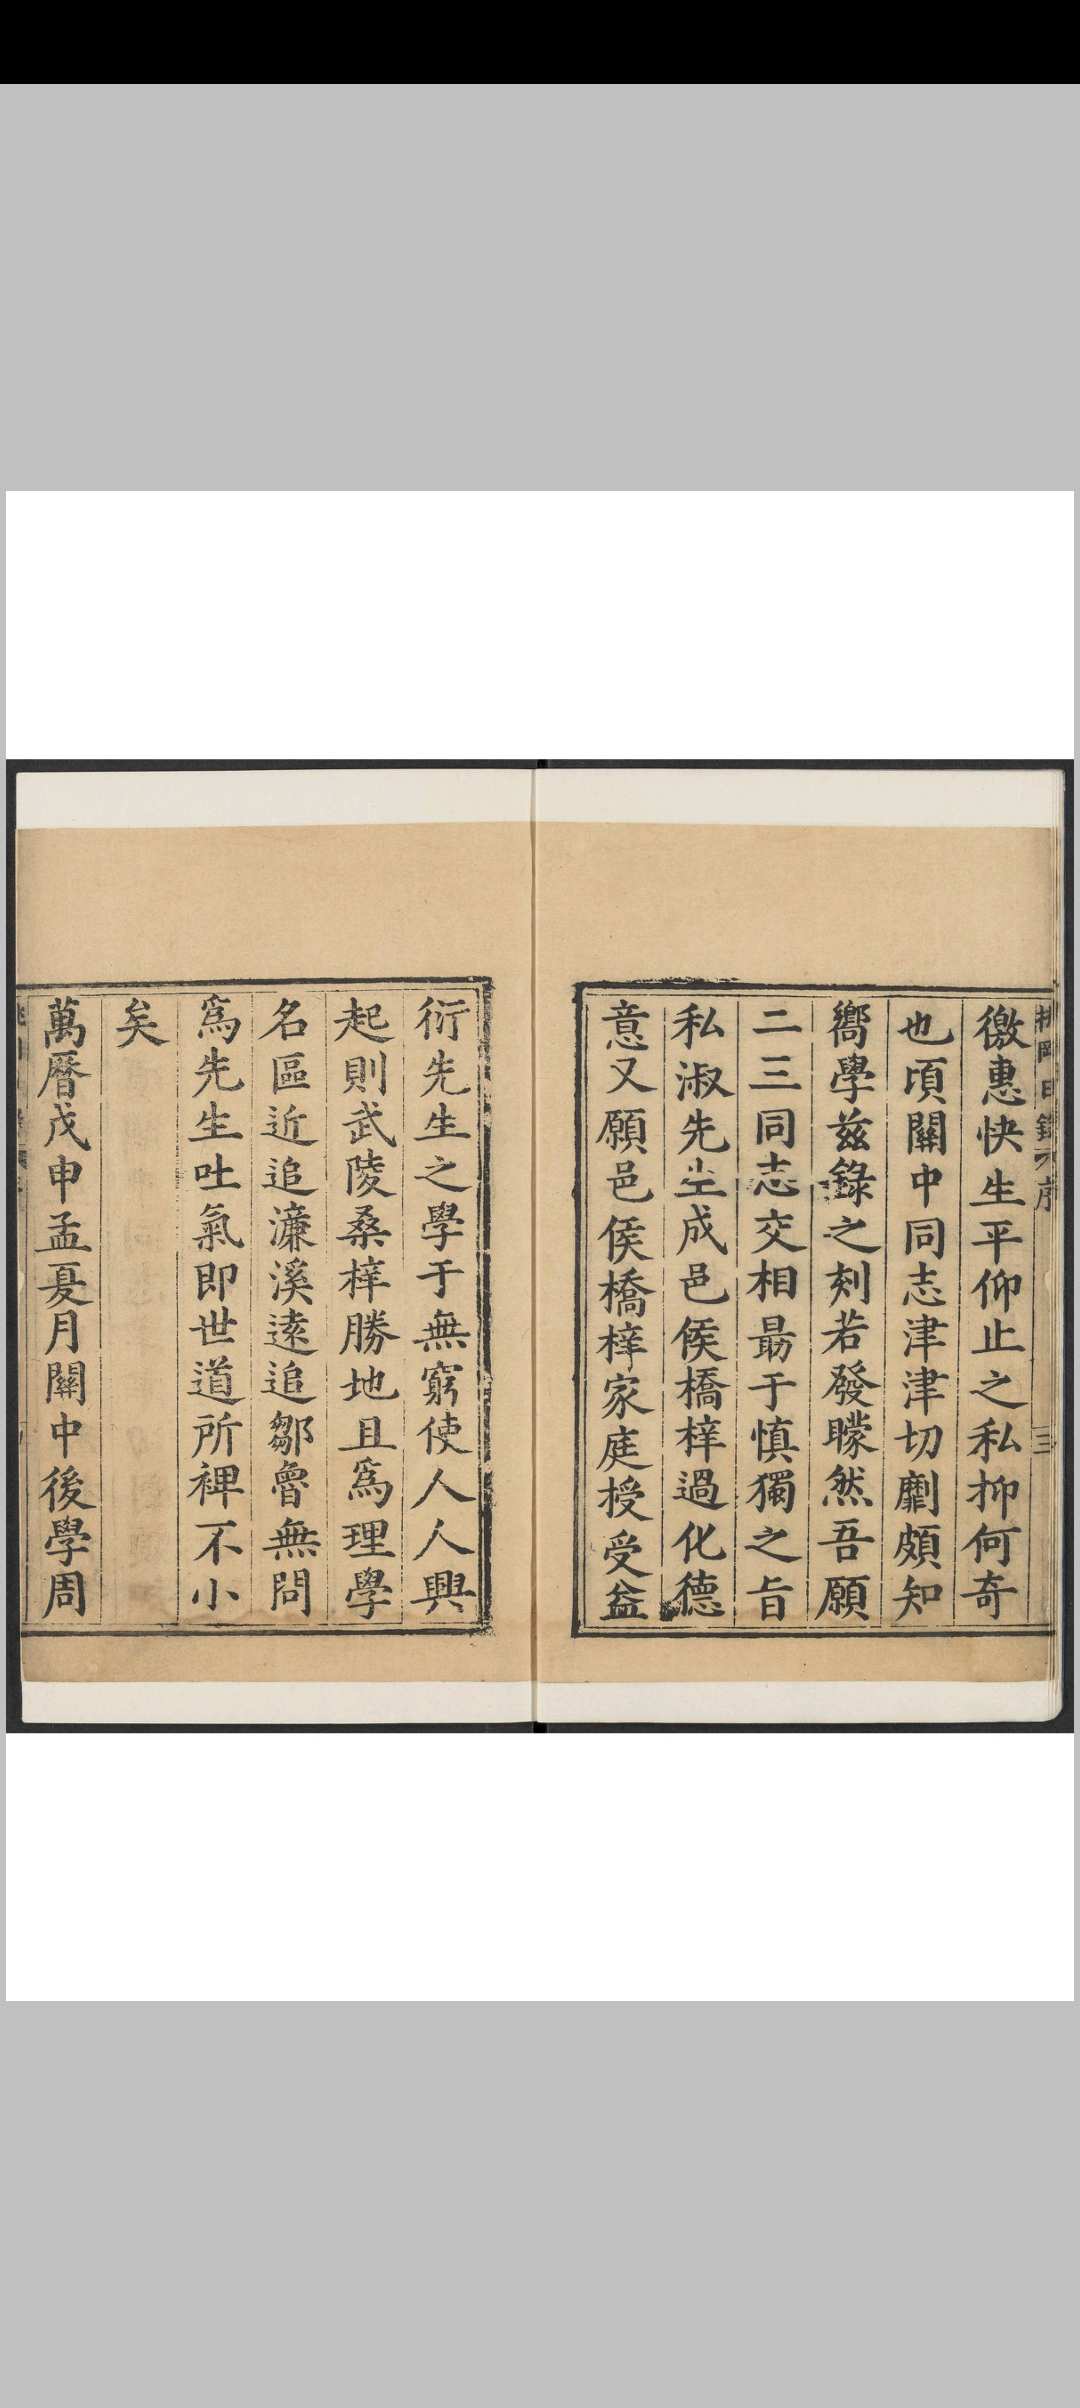 徼惠快生平仰止之私抑何奇
也頃關中同志津津切劘頗知
嚮學茲錄之刻若發矇然吾願
二三同志交相最于慎獨之旨
私淑先生成邑侯橋梓過化德
意又願邑侯橋梓家庭授受益
衍先生之學于無窮使人人興
起則武陵桑梓勝地且爲理學
名區近追濂溪遠追鄒魯無問
爲先生吐氣即世道所裨不小
矣
萬曆戊申孟夏月關中後學周